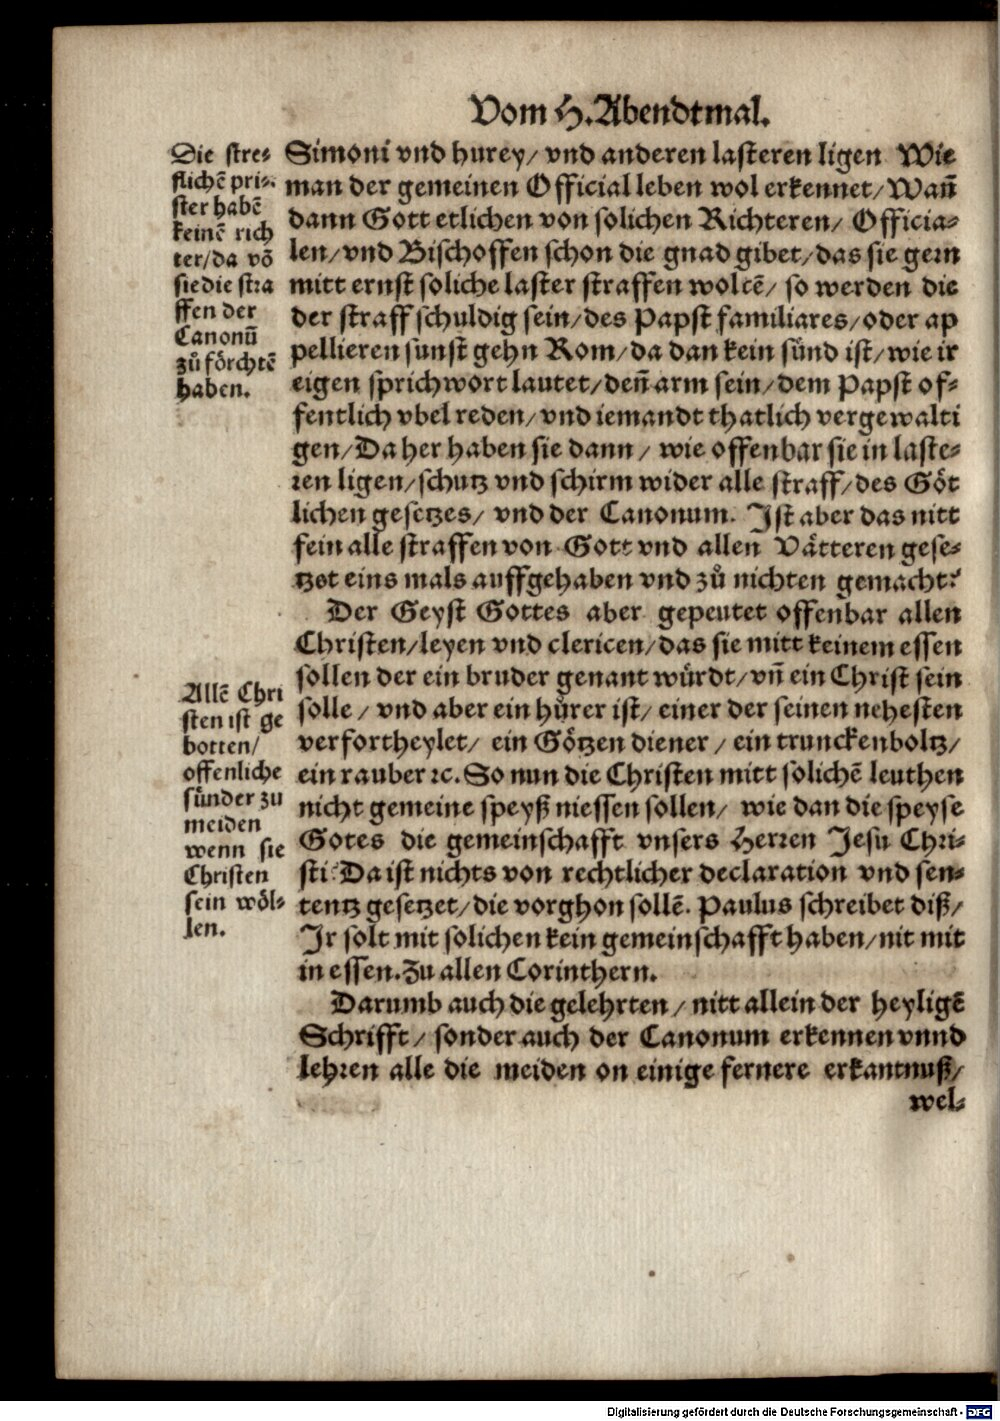 Vom H. Abendtmal.
Die stre-
flichē pri-
ster habē
keinē rich
ter/da vō
sie die stra
ffen der
Canonū
zů förchtē
haben.
Simoni vnd hurey/ vnd anderen lasteren ligen Wie
man der gemeinen Official leben wol erkennet/ Wañ
dann Gott etlichen von solichen Richteren/ Officia-
len/ vnd Bischoffen schon die gnad gibet/ das sie gern
mitt ernst soliche laster straffen wolcē/ so werden die
der straff schuldig sein/ des Papst familiares/ oder ap
pellieren sunst gehn Rom/ da dan kein sünd ist/ wie ir
eigen sprichwort lautet/ deñ arm sein/ dem Papst of-
fentlich vbel reden/ vnd iemandt thatlich vergewalti
gen/ Da her haben sie dann/ wie offenbar sie in laste-
ren ligen/ schutz vnd schirm wider alle straff/ des Göt
lichen gesetzes/ vnd der Canonum. Ist aber das nitt
fein alle straffen von Gott vnd allen Vätteren gese-
tzet eins mals auffgehaben vnd zů nichten gemacht?
Der Geyst Gottes aber gepeutet offenbar allen
Christen/ leyen vnd clericen/ das sie mitt keinem essen
sollen der ein bruder genant würdt/ vñ ein Christ sein
solle/ vnd aber ein hůrer ist/ einer der seinen nehesten
verfortheylet/ ein Götzen diener/ ein trunckenboltz/
ein rauber ꝛc. So nun die Christen mitt solichē leuthen
nicht gemeine speyß niessen sollen/ wie dan die speyse
Gotes die gemeinschafft vnsers Herren Jesu Chri-
sti? Da ist nichts von rechtlicher declaration vnd sen-
tentz gesetzet/ die vorghon sollē. Paulus schreibet diß/
Ir solt mit solichen kein gemeinschafft haben/ nit mit
in essen. Zu allen Corinthern.
Allē Chri
sten ist ge
botten/
offenliche
sünder zu
meiden
wenn sie
Christen
sein wöl-
len.
Darumb auch die gelehrten/ nitt allein der heyligē
Schrifft/ sonder auch der Canonum erkennen vnnd
lehren alle die meiden on einige fernere erkantnuß/
wel-
Digitalisierung gefördert durch die Deutsche Forschungsgemeinschaft - DFG